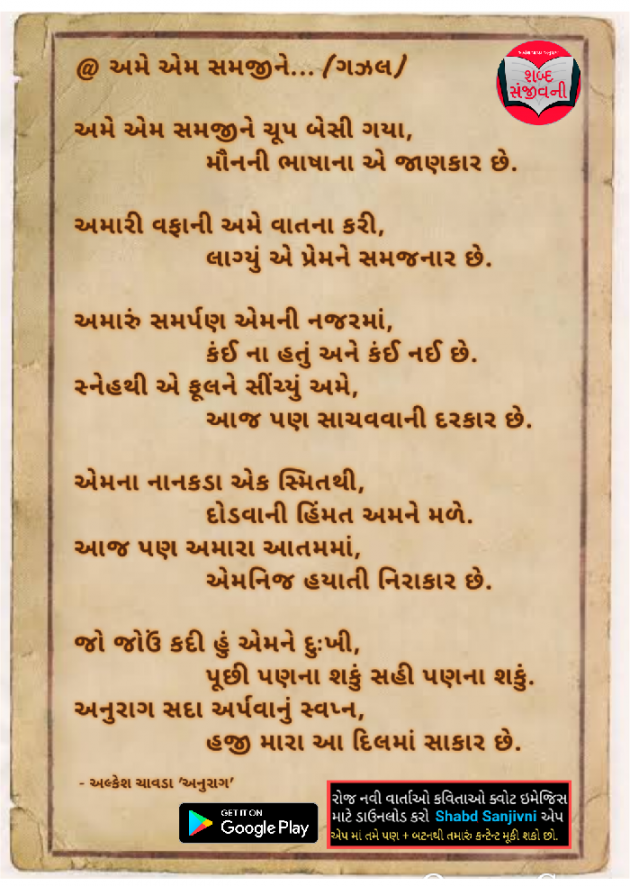 @ અમે એમ સમજીને... (ગઝલ)
શબ્દ
સંજીવની
અમે એમ સમજીને ચૂપ બેસી ગયા,
મૌનની ભાષાના એ જાણકાર છે.
અમારી વફાની અમે વાતના કરી,
લાગ્યું એ પ્રેમને સમજનાર છે.
અમારું સમર્પણ એમની નજરમાં,
કંઈ ના હતું અને કંઈ નઈ છે.
સ્નેહથી એ ફૂલને સીંચ્યું અમે,
આજ પણ સાચવવાની દરકાર છે.
એમના નાનકડા એક સ્મિતથી,
દોડવાની હિંમત અમને મળે.
આજ પણ અમારા આતમમાં,
એમનિજ હયાતી નિરાકાર છે.
જો જોઉં કદી હું એમને દુઃખી,
પૂછી પણના શકું સહી પણના શકું.
અનુરાગ સદા અર્પવાનું સ્વપ્ન,
હજી મારા આ દિલમાં સાકાર છે.
- અલ્કેશ ચાવડા 'અનુરાગ'
GET IT ON
Google Play
રોજ નવી વાર્તાઓ કવિતાઓ ક્વોટ ઇમેજિસ
માટે ડાઉનલોડ કરો Shabd Sanjivni એપ
એપ માં તમે પણ + બટનથી તમારું કન્ટેન્ટ મૂકી શકો છો.